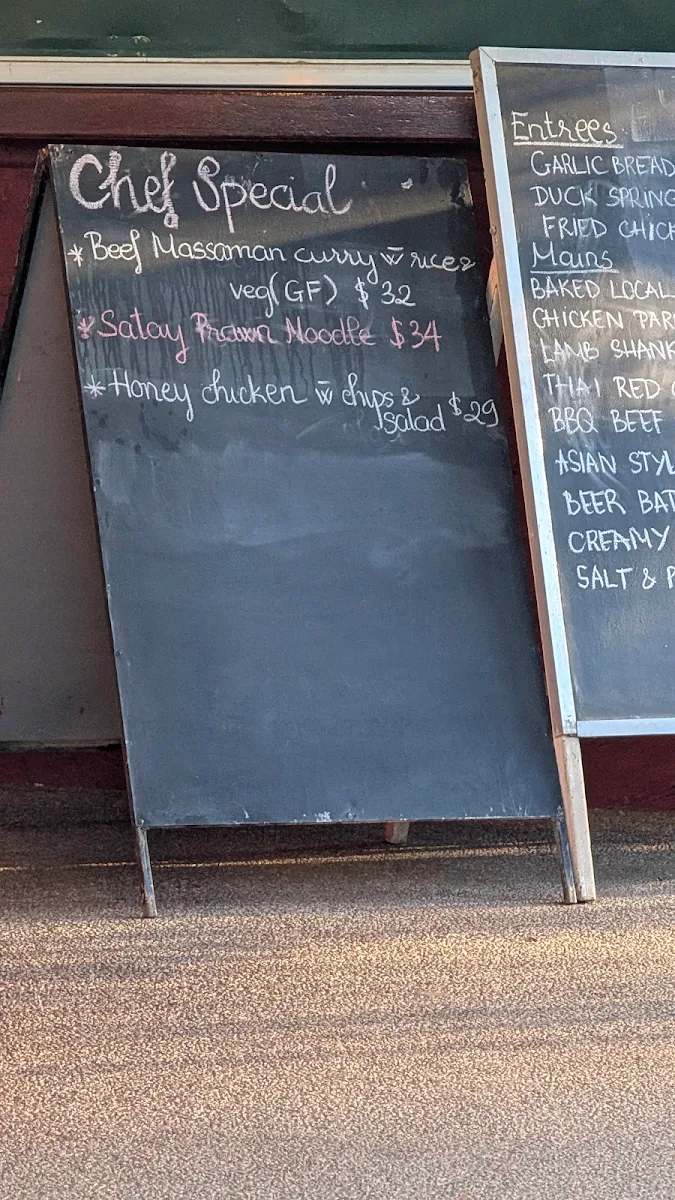 Chef Special
* Beef Massaman curry w̄ rice &
veg (GF) $32
* Satay Prawn Noodle $34
* Honey chicken w̄ chips &
salad $29
Entrees
GARLIC BREAD
DUCK SPRING
FRIED CHICK
Mains
BAKED LOCAL
CHICKEN PAR
LAMB SHANK
THAI RED
BBQ BEEF
ASIAN STYL
BEER BAT
CREAMY
SALT & P